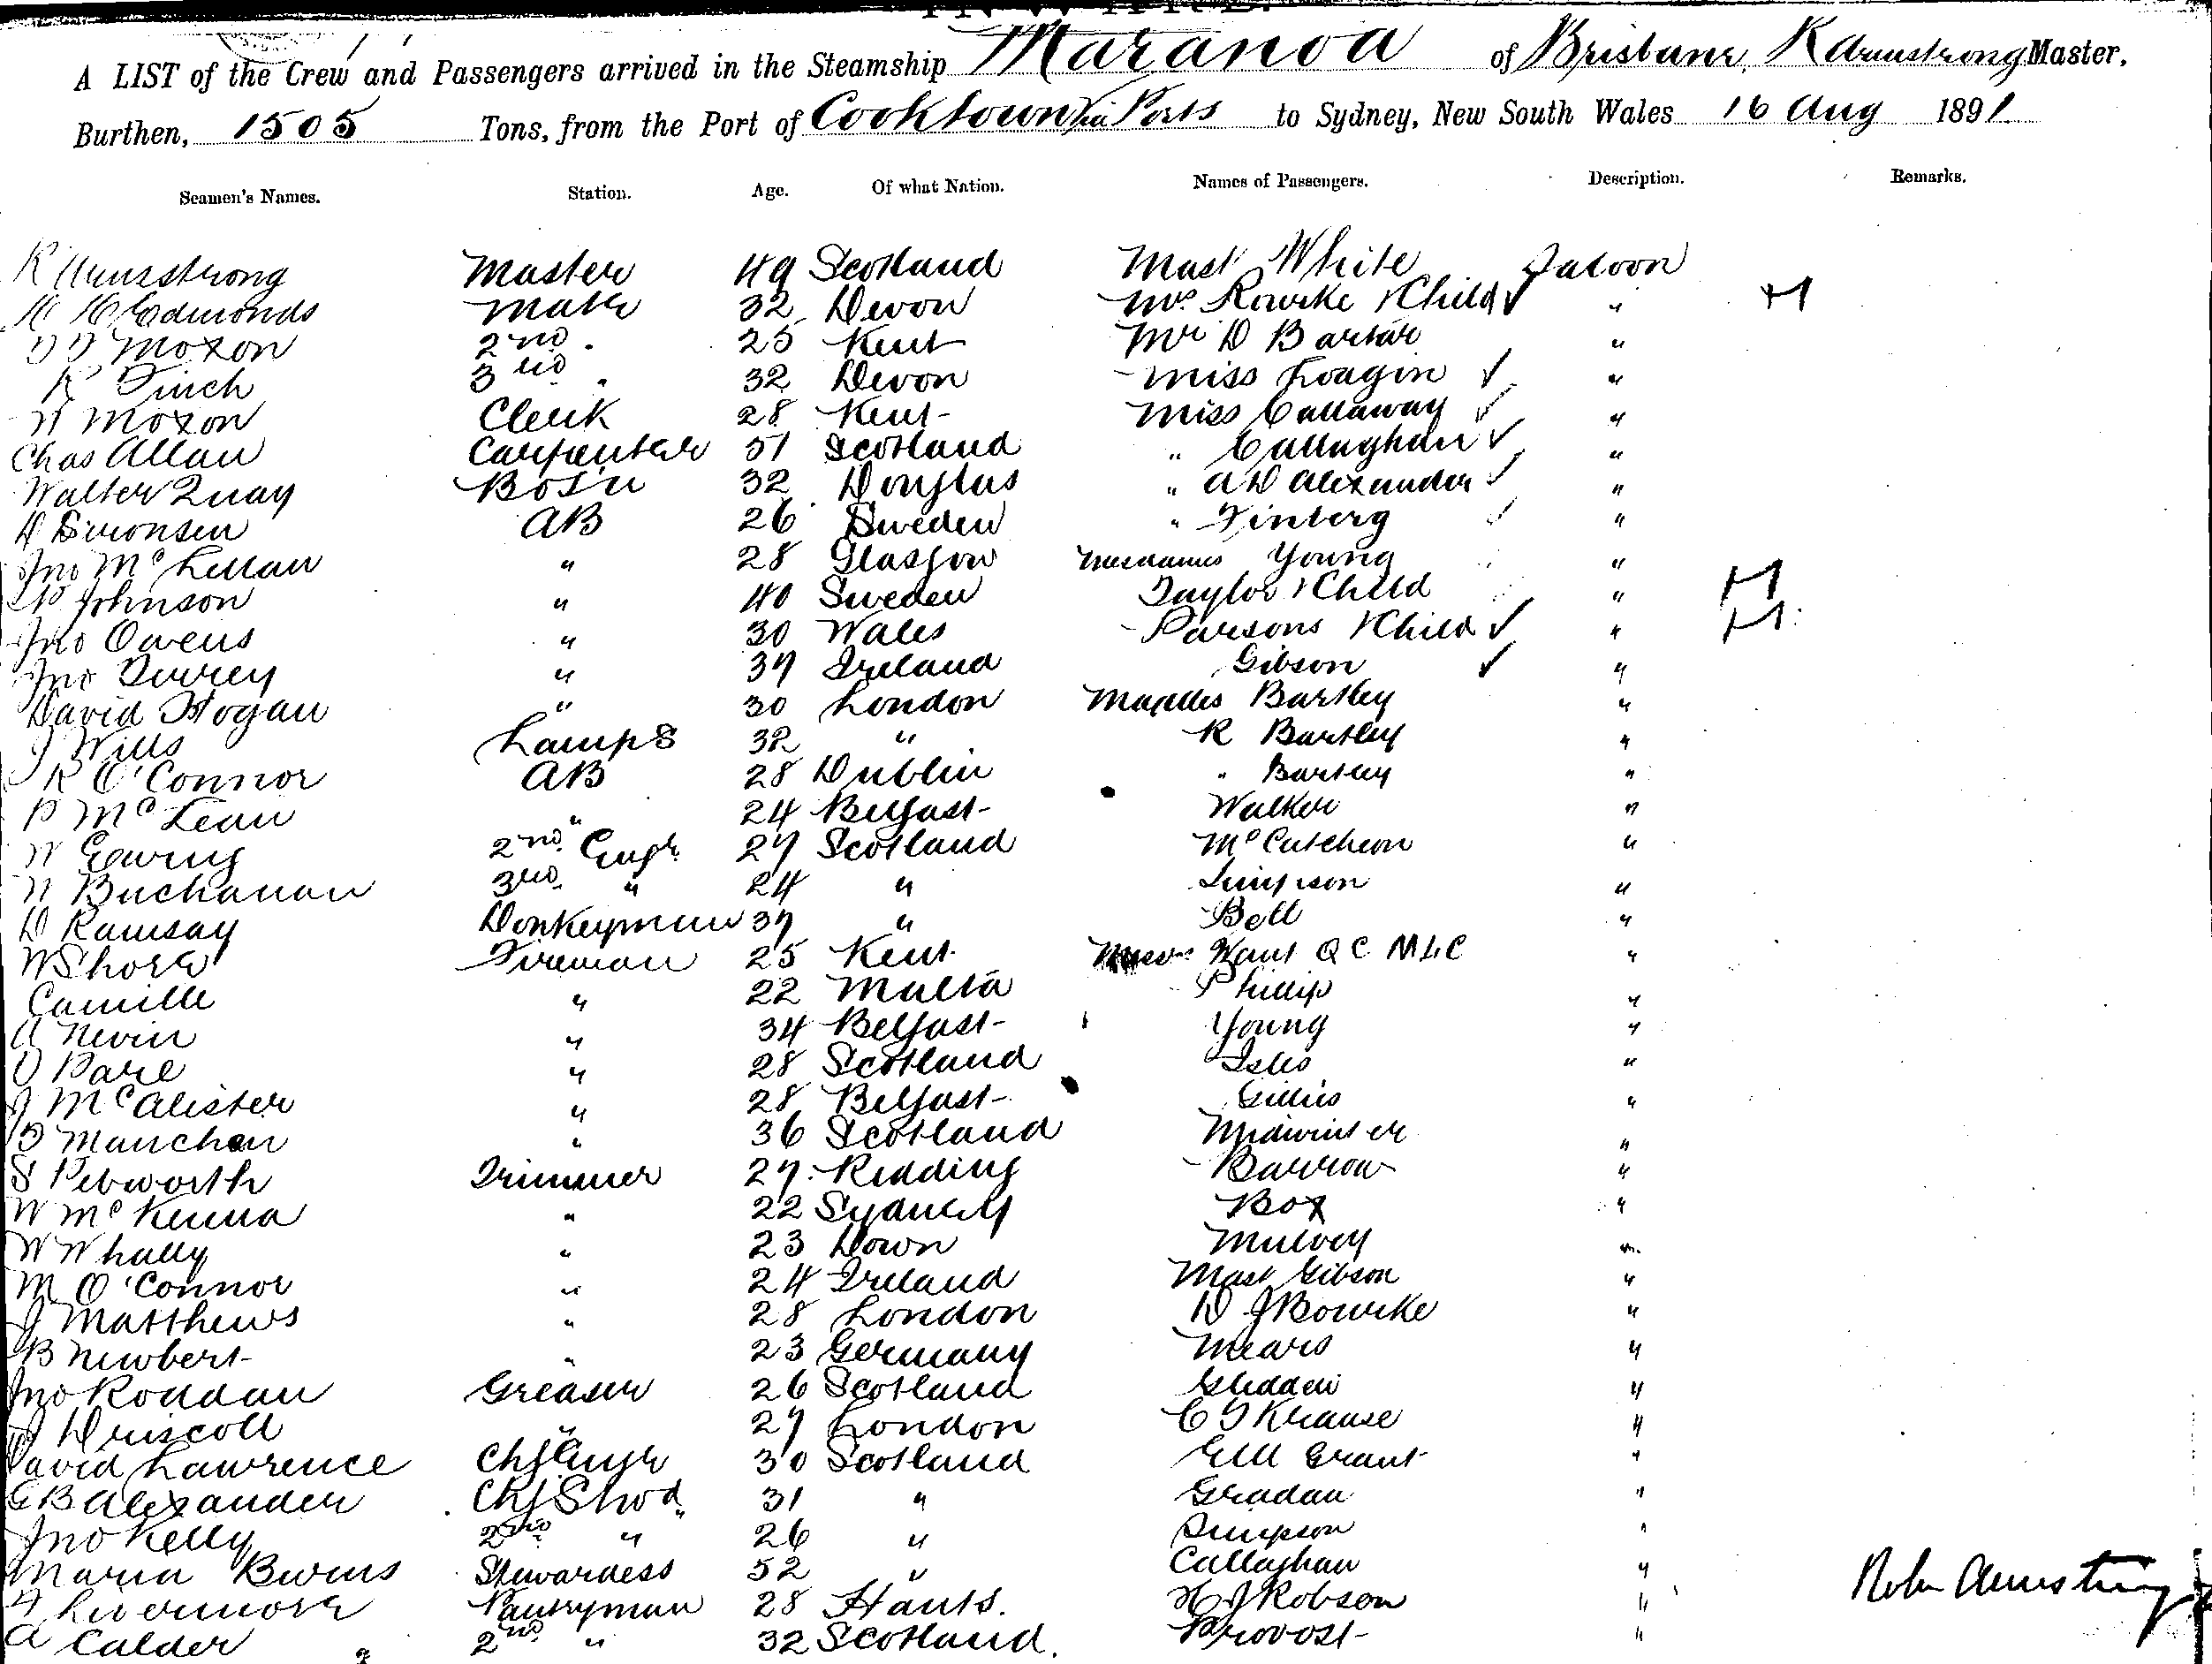 A LIST of the Crew and Passengers arrived in the Steamship Maranoa of Brisbane, R Armstrong Master,
Burthen, 1505 Tons, from the Port of Cooktown via Ports to Sydney, New South Wales 16 Aug 1891
Seamen's Names. Station. Age. Of what Nation. Names of Passengers. Description. Remarks.
R Armstrong Master 49 Scotland Mast White Saloon
H H Edmonds Mate 32 Devon Mrs Rourke & Child ✓ " H
Moxon 2nd " 25 Kent Mr D Bartar "
R Finch 3rd " 32 Devon Miss Loagin ✓ "
W Moxon Clerk 28 Kent Miss Callaway ✓ "
Chas Allan Carpenter 51 Scotland " Callaghan ✓ "
Walter Quay Bosn 32 Douglas " A D Alexander ✓ "
D Simonsen AB 26 Sweden " Finberg ✓ "
Jno McLellan " 28 Glasgow Mesdames Young "
Johnson " 40 Sweden Taylor & Child " H
Jno Owens " 30 Wales Parsons & Child ✓ " H
Jno " 37 Ireland Gibson ✓ "
David Hogan " 30 London Bartley "
J Wills Lamps 32 " R Bartley "
R O'Connor AB 28 Dublin " Bartley "
P McLean " 24 Belfast Walker "
W Ewing 2nd Engr 27 Scotland McCutcheon "
N Buchanan 3rd " 24 " Simpson "
D Ramsay Donkeyman 37 " Bell "
W Shore Fireman 25 Kent Messrs Want QC MLC "
Camille " 22 Malta Phillip "
A Nevin " 34 Belfast Young "
D Pare " 28 Scotland Isles "
J McAlister " 28 Belfast Gillies "
Manchan " 36 Scotland Midwinter "
S Pebworth Trimmer 27 Redding Barrow "
W McKenna " 22 Sydney Box "
W Whally " 23 Down Mulvey "
M O'Connor " 24 Ireland Mast Gibson "
J Matthews " 28 London D J Bourke "
B Newbert " 23 Germany Mears "
Jno Roddan Greaser 26 Scotland Glidden "
J Driscoll " 27 London C T Krause "
David Lawrence Chf Engr 30 Scotland Grant "
G B Alexander Chf Stwd 31 " Gradan "
Jno Kelly 2nd " 26 " Simpson "
Maria Burns Stewardess 52 " Callaghan "
F Livermore Pantryman 28 Hants. H J Robson "
A Calder 2nd " 32 Scotland. Provost "
Robr Armstrong